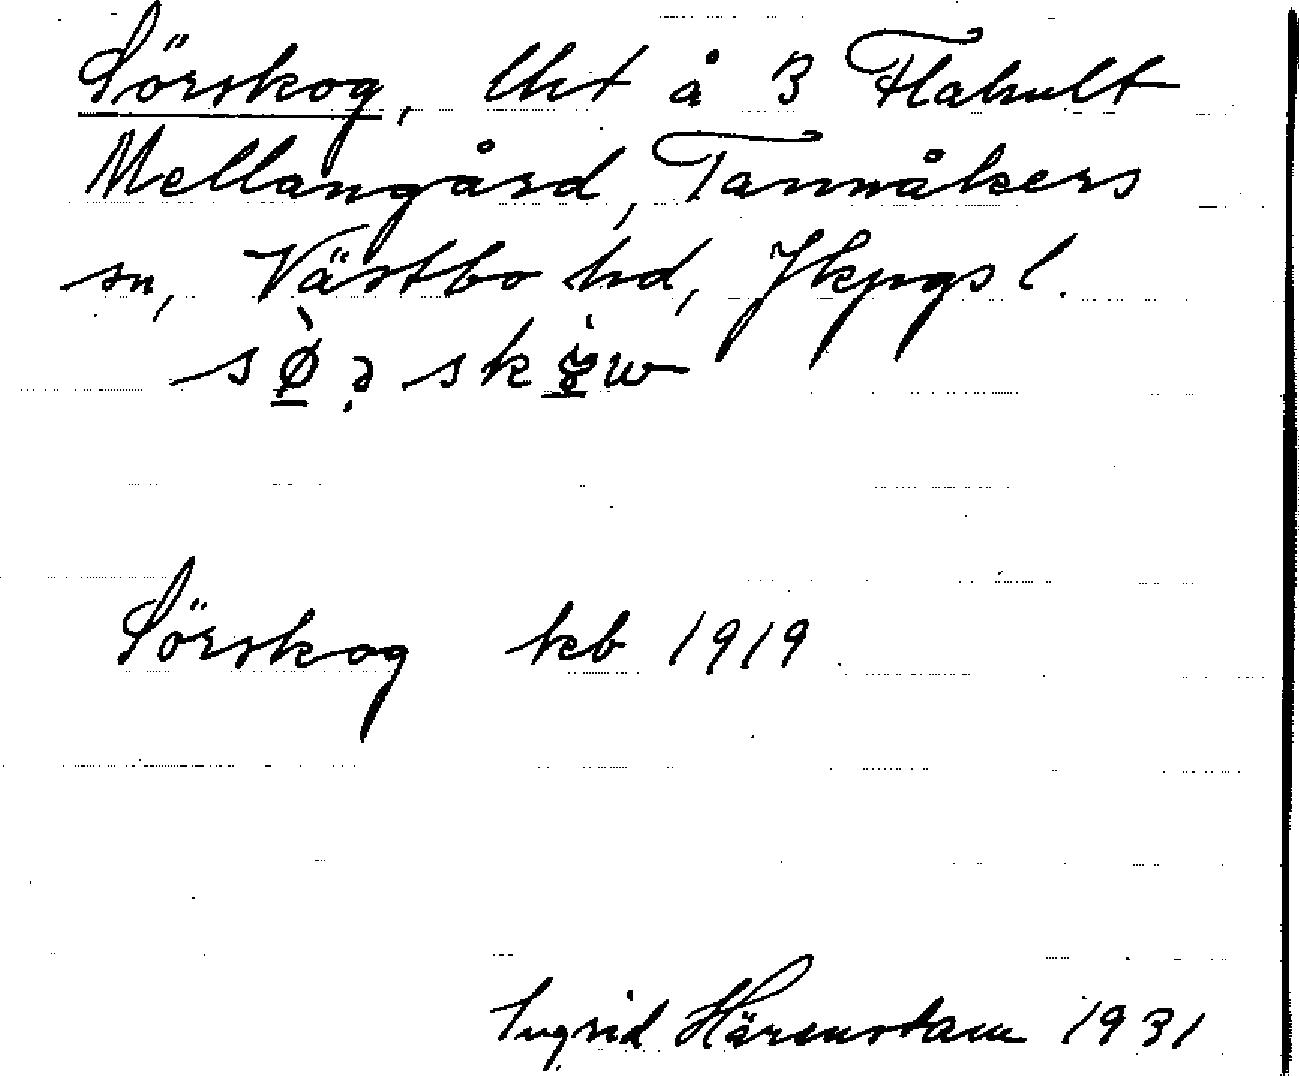 Sörskog, lht å 3 Flahult
Mellangård, Tannåkers
sn, Västbo hd, Jkpgs l.
Sörskog kb 1919
Ingrid Härenstam 1931